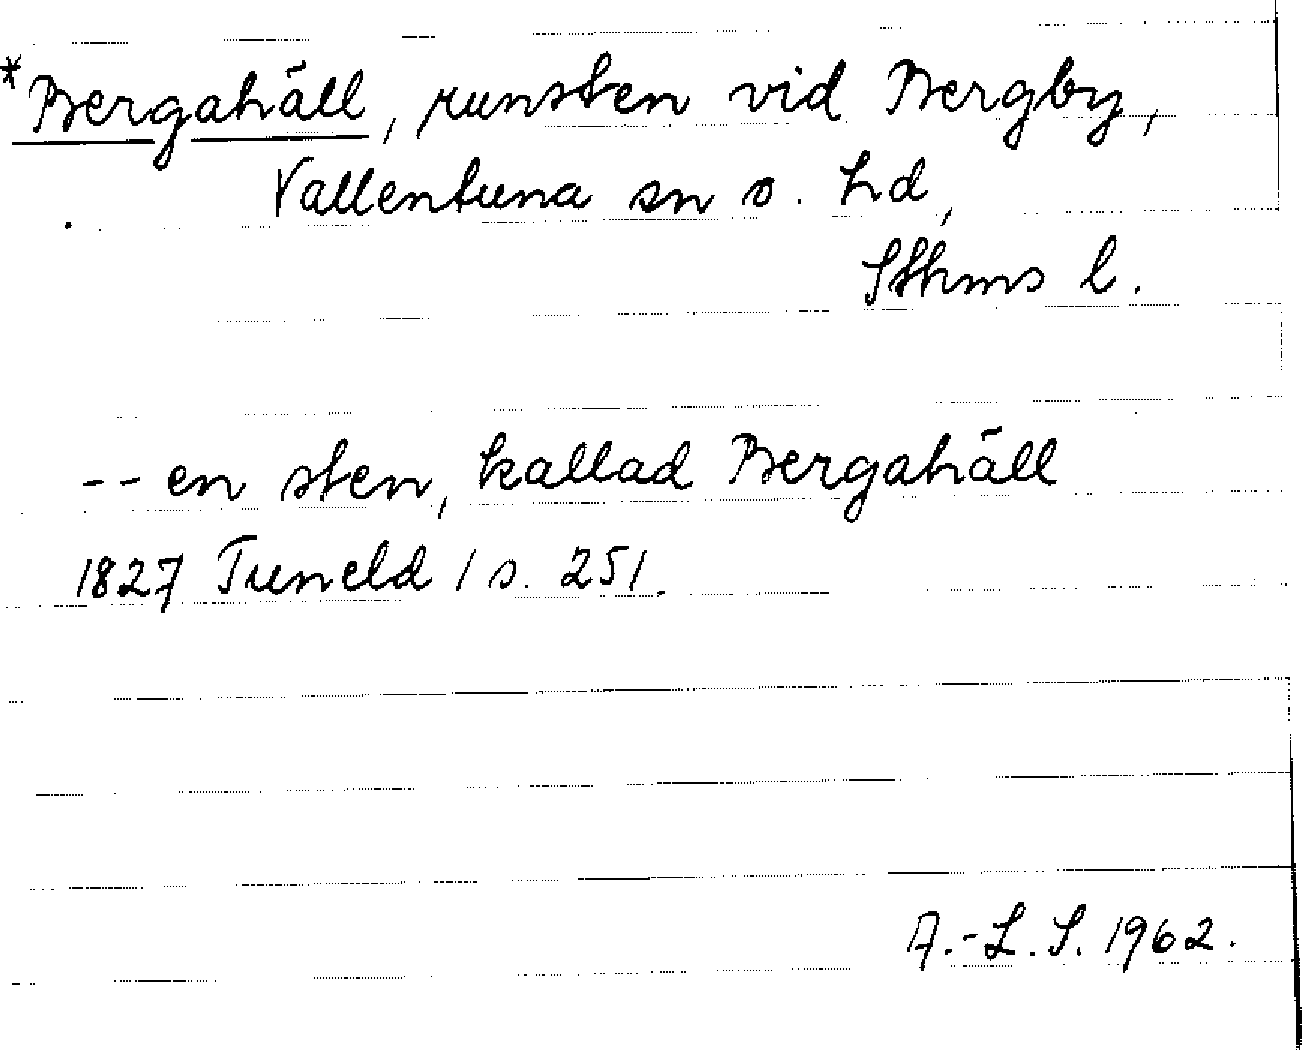 *Bergahäll, runsten vid Bergby,
Vallentuna sn o. hd,
Sthms l.
-- en sten, kallad Bergahäll
1827 Tuneld 1 s. 251.
A.-L. S. 1962.